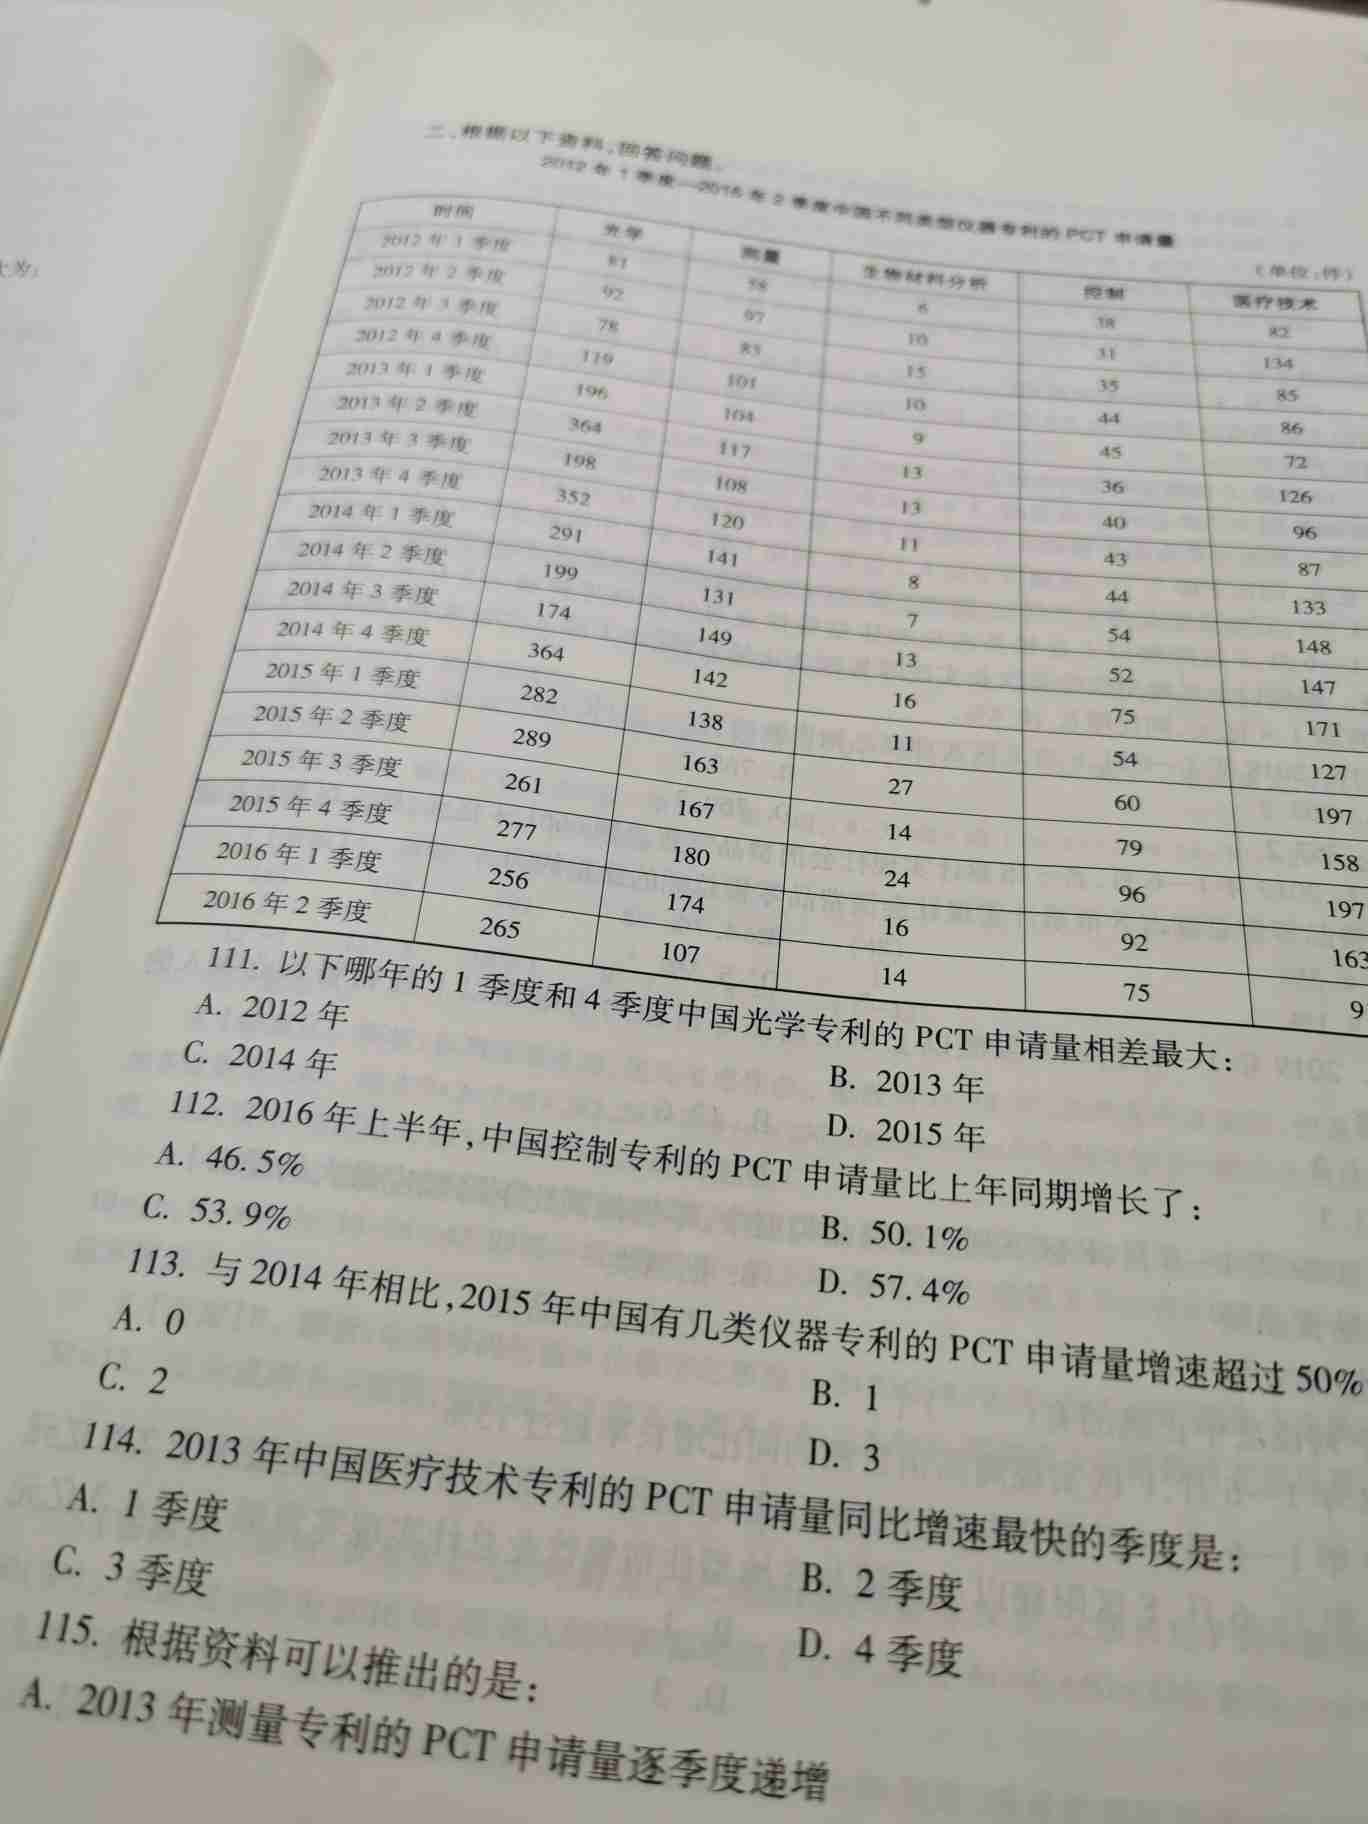 二、根据以下资料,回答问题。
2012年1季度—2016年2季度中国不同类型仪器专利的PCT申请量
(单位:件)
时间 光学 测量 生物材料分析 控制 医疗技术
2012年1季度 81 58 6 38 82
2012年2季度 92 97 10 31 134
2012年3季度 78 85 15 35 85
2012年4季度 119 101 10 44 86
2013年1季度 196 104 9 45 72
2013年2季度 364 117 13 36 126
2013年3季度 198 108 13 40 96
2013年4季度 352 120 11 43 87
2014年1季度 291 141 8 44 133
2014年2季度 199 131 7 54 148
2014年3季度 174 149 13 52 147
2014年4季度 364 142 16 75 171
2015年1季度 282 138 11 54 127
2015年2季度 289 163 27 60 197
2015年3季度 261 167 14 79 158
2015年4季度 277 180 24 96 197
2016年1季度 256 174 16 92 163
2016年2季度 265 107 14 75 9
111. 以下哪年的1季度和4季度中国光学专利的PCT申请量相差最大:
A. 2012年 B. 2013年
C. 2014年 D. 2015年
112. 2016年上半年,中国控制专利的PCT申请量比上年同期增长了:
A. 46.5% B. 50.1%
C. 53.9% D. 57.4%
113. 与2014年相比,2015年中国有几类仪器专利的PCT申请量增速超过50%
A. 0 B. 1
C. 2 D. 3
114. 2013年中国医疗技术专利的PCT申请量同比增速最快的季度是:
A. 1季度 B. 2季度
C. 3季度 D. 4季度
115. 根据资料可以推出的是:
A. 2013年测量专利的PCT申请量逐季度递增